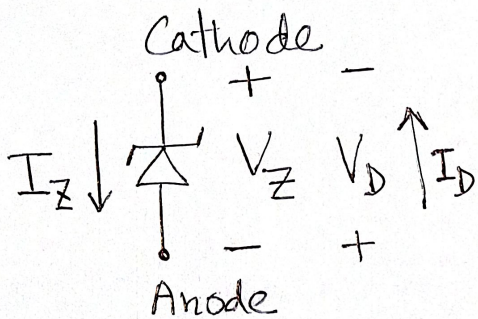 Cathode
+ −
I_Z V_Z V_D I_D
− +
Anode